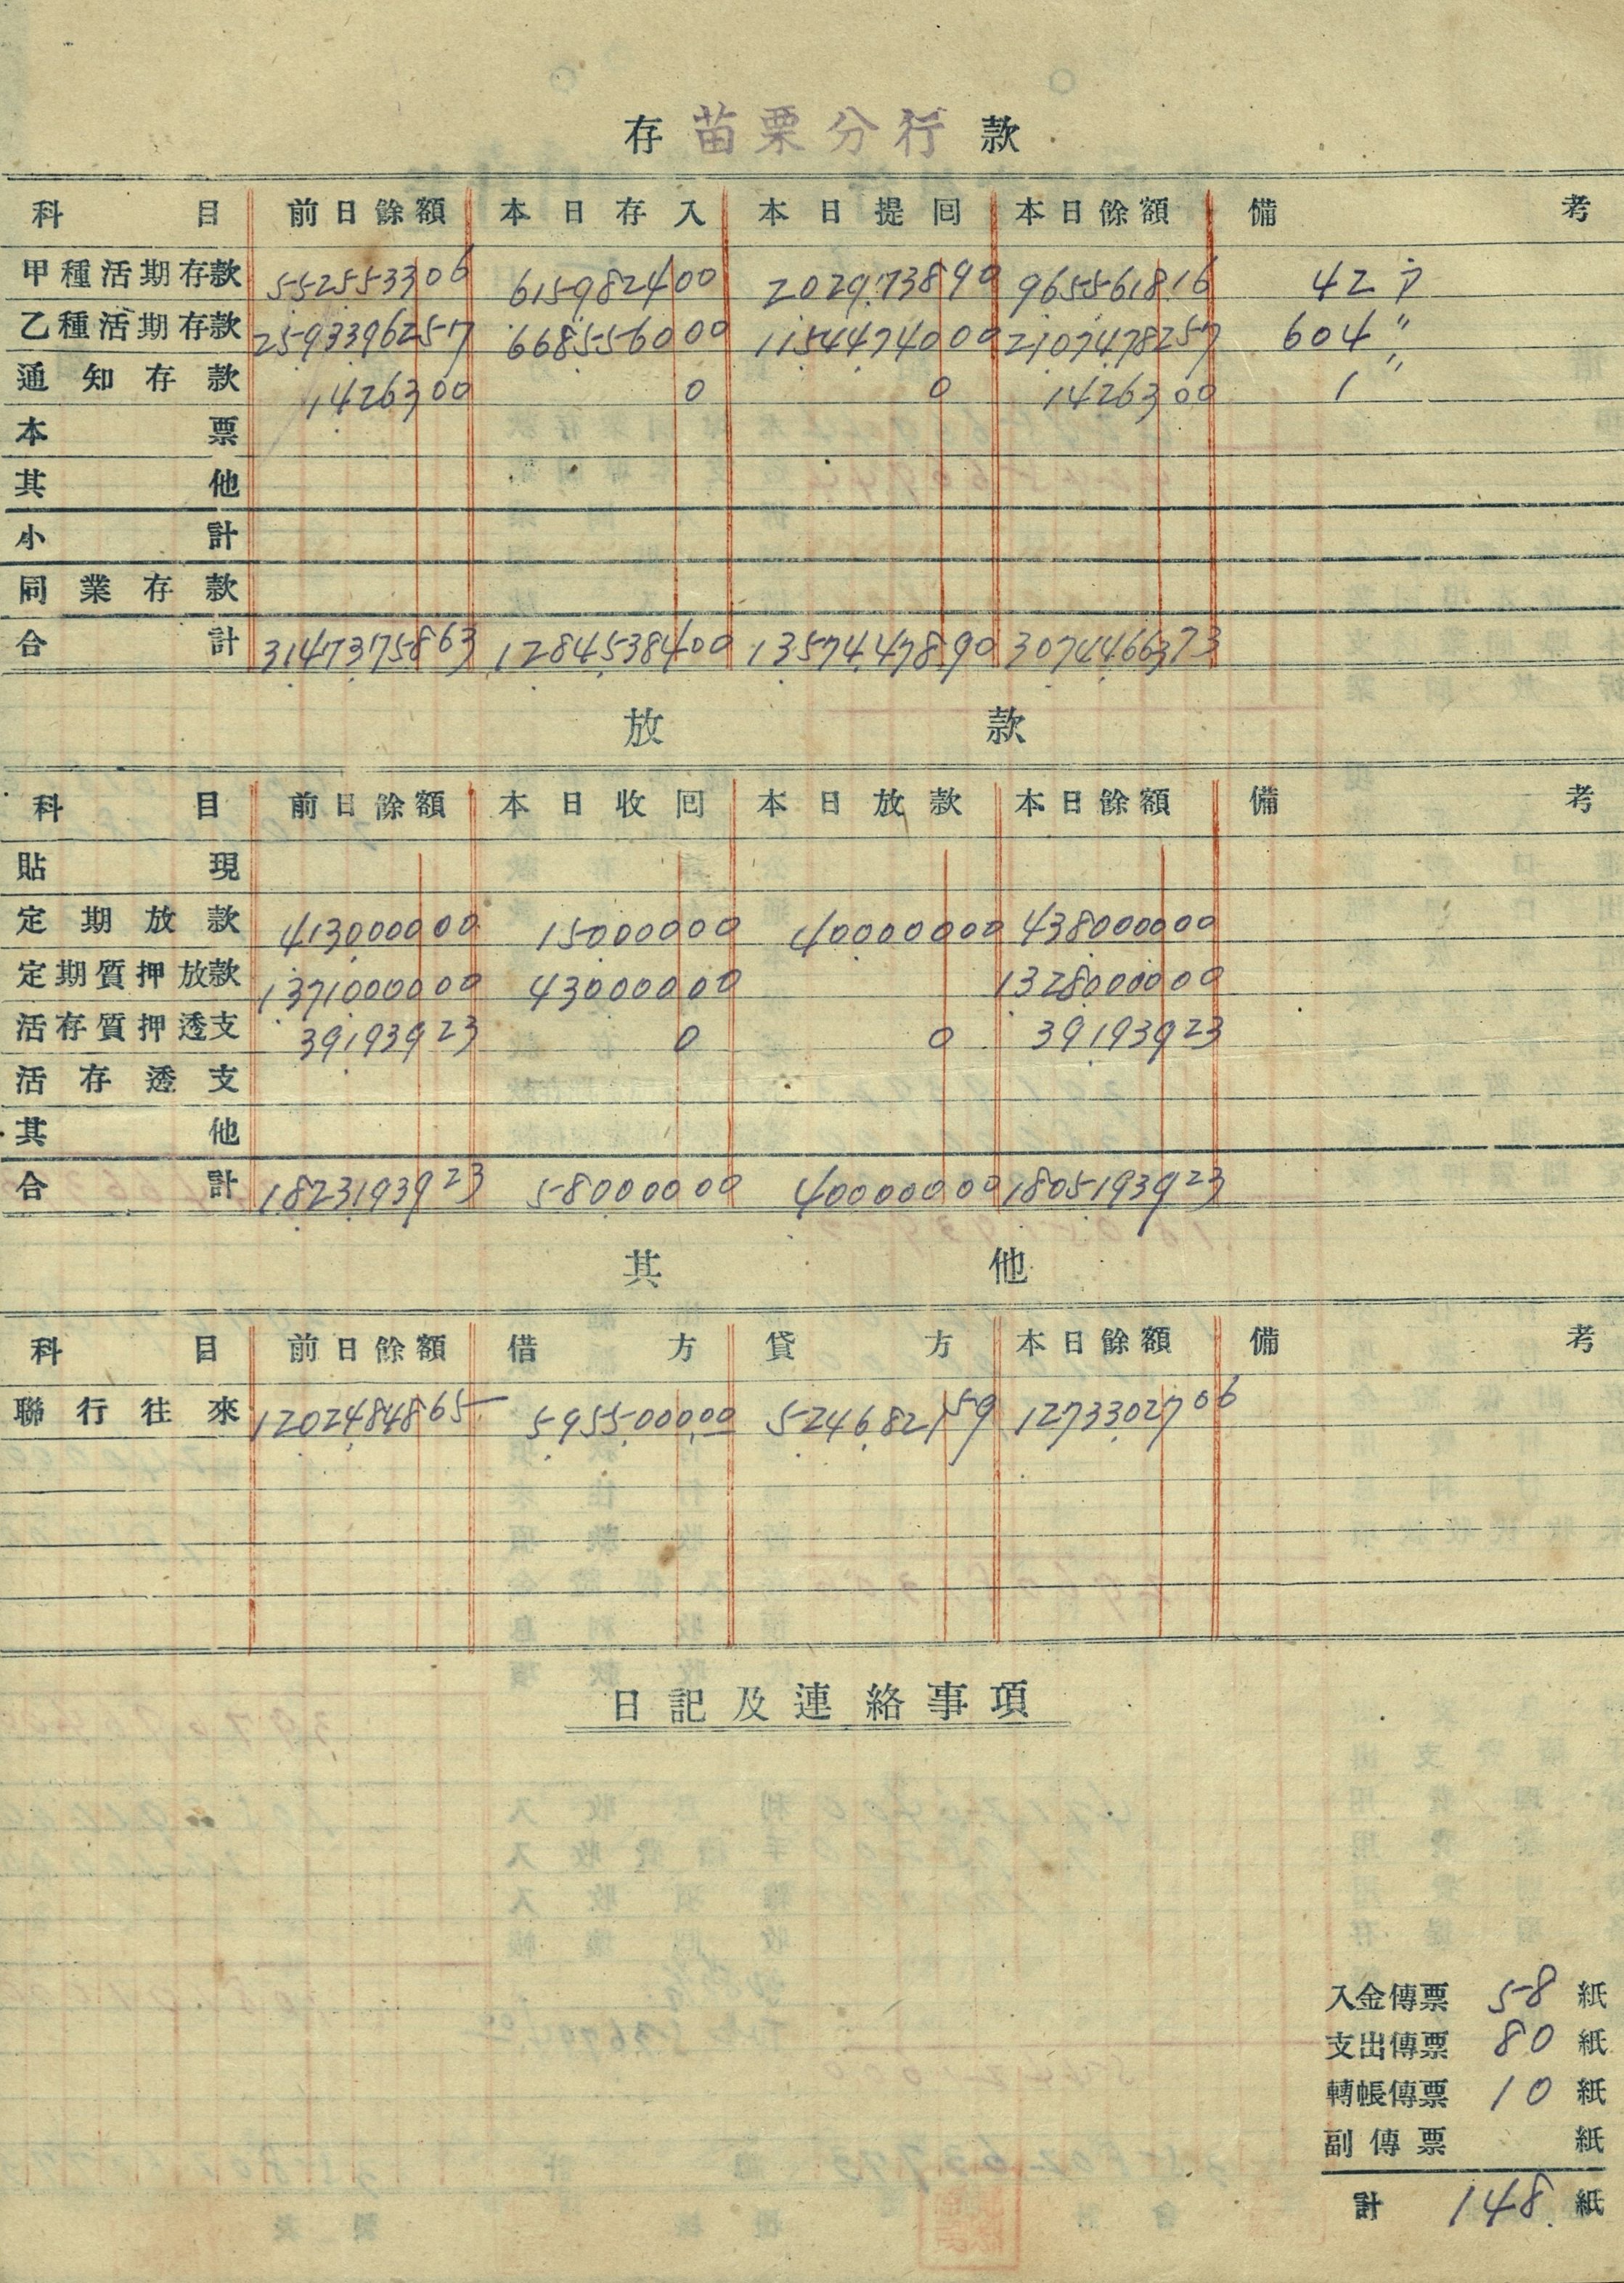 存 苗栗分行 款
科目 前日餘額 本日存入 本日提囘 本日餘額 備考
甲種活期存款 552553306 615982400 202973890 965561816 42 戶
乙種活期存款 2593396257 668556000 1154474000 2107478257 604 〃
通知存款 1426300 0 0 1426300 1 〃
本票
其他
小計
同業存款
合計 3147375863 1284538400 1357447890 3074466373
放款
科目 前日餘額 本日收囘 本日放款 本日餘額 備考
貼現
定期放款 413000000 15000000 40000000 438000000
定期質押放款 1371000000 43000000 1328000000
活存質押透支 39193923 0 0 39193923
活存透支
其他
合計 1823193923 58000000 40000000 1805193923
其他
科目 前日餘額 借方 貸方 本日餘額 備考
聯行往來 1202484865 595500000 524682159 1273302706
日記及連絡事項
入金傳票 58 紙
支出傳票 80 紙
轉帳傳票 10 紙
副傳票 紙
計 148 紙